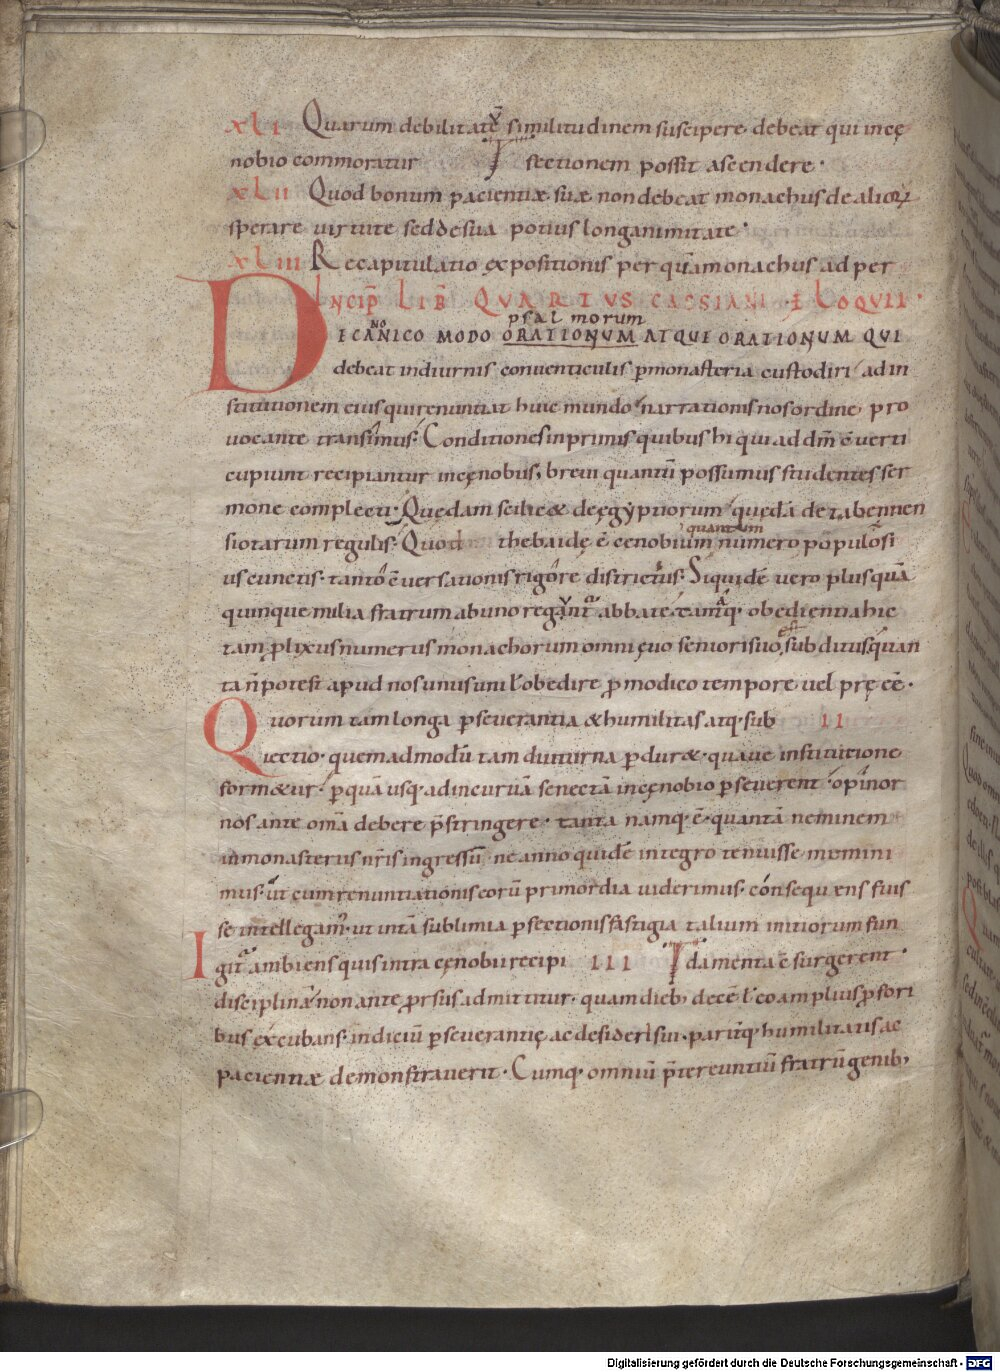 XLI Quarum debilitatẽ similitudinem suscipere debeat qui incę
nobio commoratur sectionem possit ascendere·
XLII Quod bonum pacientiæ suæ non debeat monachus de alioꝝ
sperare virtute sed de sua potius longanimitate·
XLIII Recapitulatio expositionis per quã monachus ad per
INCIP̃ LIB̃ QUARTUS CASSIANI ELOQUII·
psalmorum
DE CANONICO MODO ORATIONUM ATQUE ORATIONUM QUI
debeat indiurnis conventiculis ꝑ monasteria custodiri ad in
stitutionem eius qui renuntiat huic mundo narrationis nos ordine pro
vocante transimus· Conditiones inprimis quibus hi qui ad dm̃ c̃verti
cupiunt recipiantur incęnobiis, brevi quantũ possumus studentes ser
mone complecti· Quędam scilic& de ęgyptiorum quędã de tabennen
siotarum regulis· Quod thebaidę ẽ cenobium quantum numero populosi
us cunctis· tanto c̃versationis rigore districtius· Siquidẽ vero plus quã
quinque milia fratrum ab uno regunt̃ abbate tamq· obedientia hic
tam ꝓlixus numerus monachorum omni ęvo seniori suo est subditus quan
ta ñ potest apud nos unus uni ł obedire ꝓ modico tempore vel pręeẽ·
Quorum tam longa ꝑseverantia & humilitas atq· sub II
iectio· quemadmodũ tam diuturna ꝑdur&· quave institutione
form&ur· ꝑ quã usq· ad incurvã senectã incęnobio ꝑseverent opinor
nos ante om̃a debere p̃stringere· tanta namq· ẽ· quantã neminem
in monasteriis nr̃is ingressũ ne anno quidẽ integro tenuisse memini
mus· ut cum renuntiationis eorũ primordia viderimus· consequens fuis
se intellegam̃· ut in tã sublimia ꝑfectionis fastigia talium initiorum fun
Igit̃ ambiens quis intra cęnobii recipi III damenta c̃surgerent·
disciplinã non ante ꝓrsus admittitur· quam dieb; decẽ ł eo amplius ꝓ fori
bus excubans· indiciũ ꝑseverantię ac desiderii sui· pariterq· humilitatis ac
pacientiæ demonstraverit· Cumq· omniũ p̃tereuntiũ fratrũ genib;
Digitalisierung gefördert durch die Deutsche Forschungsgemeinschaft - DFG